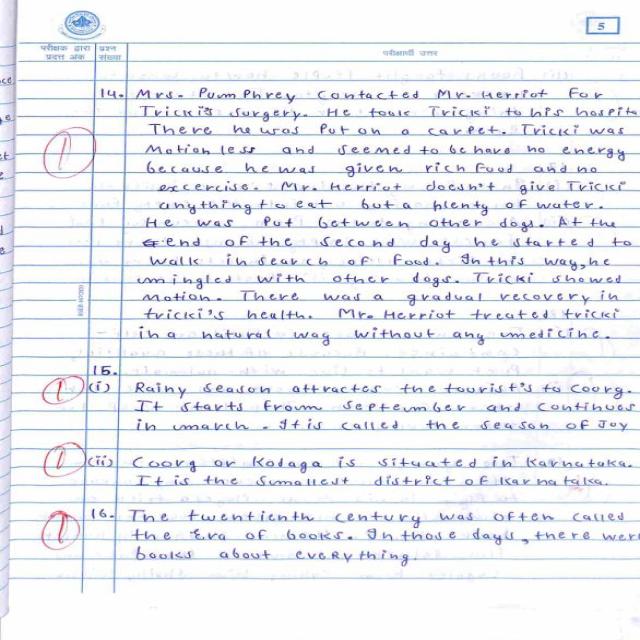 5
परीक्षक द्वारा प्रदत्त अंक
प्रश्न संख्या
परीक्षार्थी उत्तर
14. Mrs. Pumphrey Contacted Mr. Herriot For
Tricki's surgery. He took Tricki to his hospita
There he was put on a carpet. Tricki was
1
Motionless and seemed to be have no energy
because he was given rich food and no
excercise. Mr. Herriot doesn't give Tricki
anything to eat but a plenty of water.
He was put between other dogs. At the
end of the second day he started to
walk in search of food. In this way, he
mingled with other dogs. Tricki showed
motion. There was a gradual recovery in
tricki's health. Mr. Herriot treated tricki
in a natural way without any medicine.
15.
1 (i) Rainy season attractes the tourist's to Coorg.
It starts from september and continues
in march. It is called the season of Joy
1 (ii) Coorg or Kodaga is situated in Karnataka.
It is the smallest district of Karnataka.
1 16. The twentieth century was often called
the Era of books. In those days, there wer
books about everything.